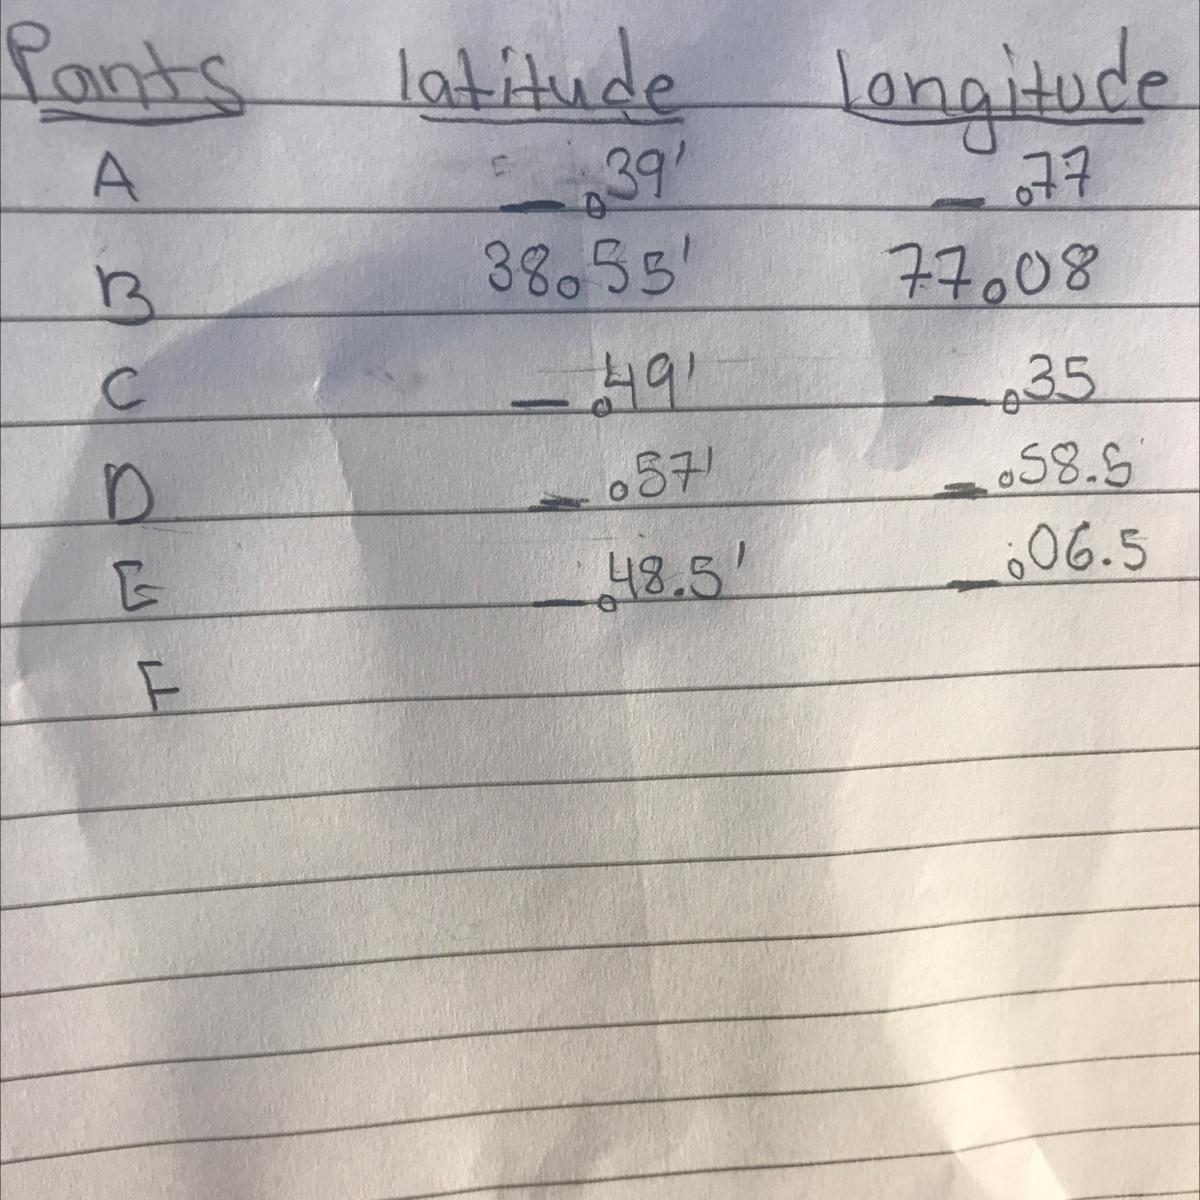 Ponts latitude longitude
A _ 。39' _ 。77
B 38。55' 77。08
C _ 。49' _ 。35
D _ 。57' _ 。58.5
E _ 。48.5' _ 。06.5
F